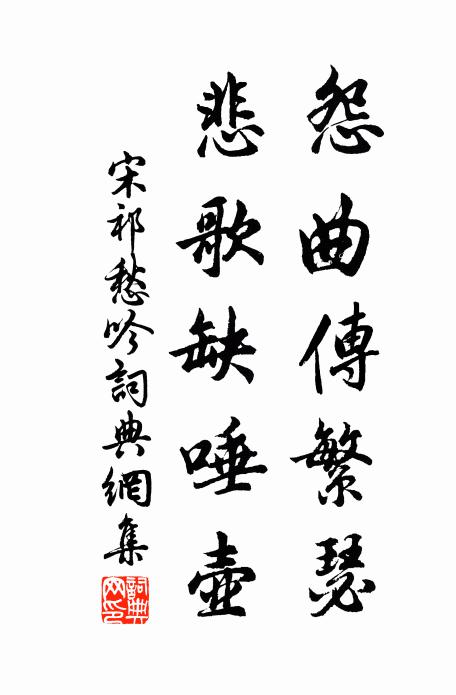 怨曲傳繁瑟
悲歌缺唾壺
宋祁愁吟詞典網集
詞典網印